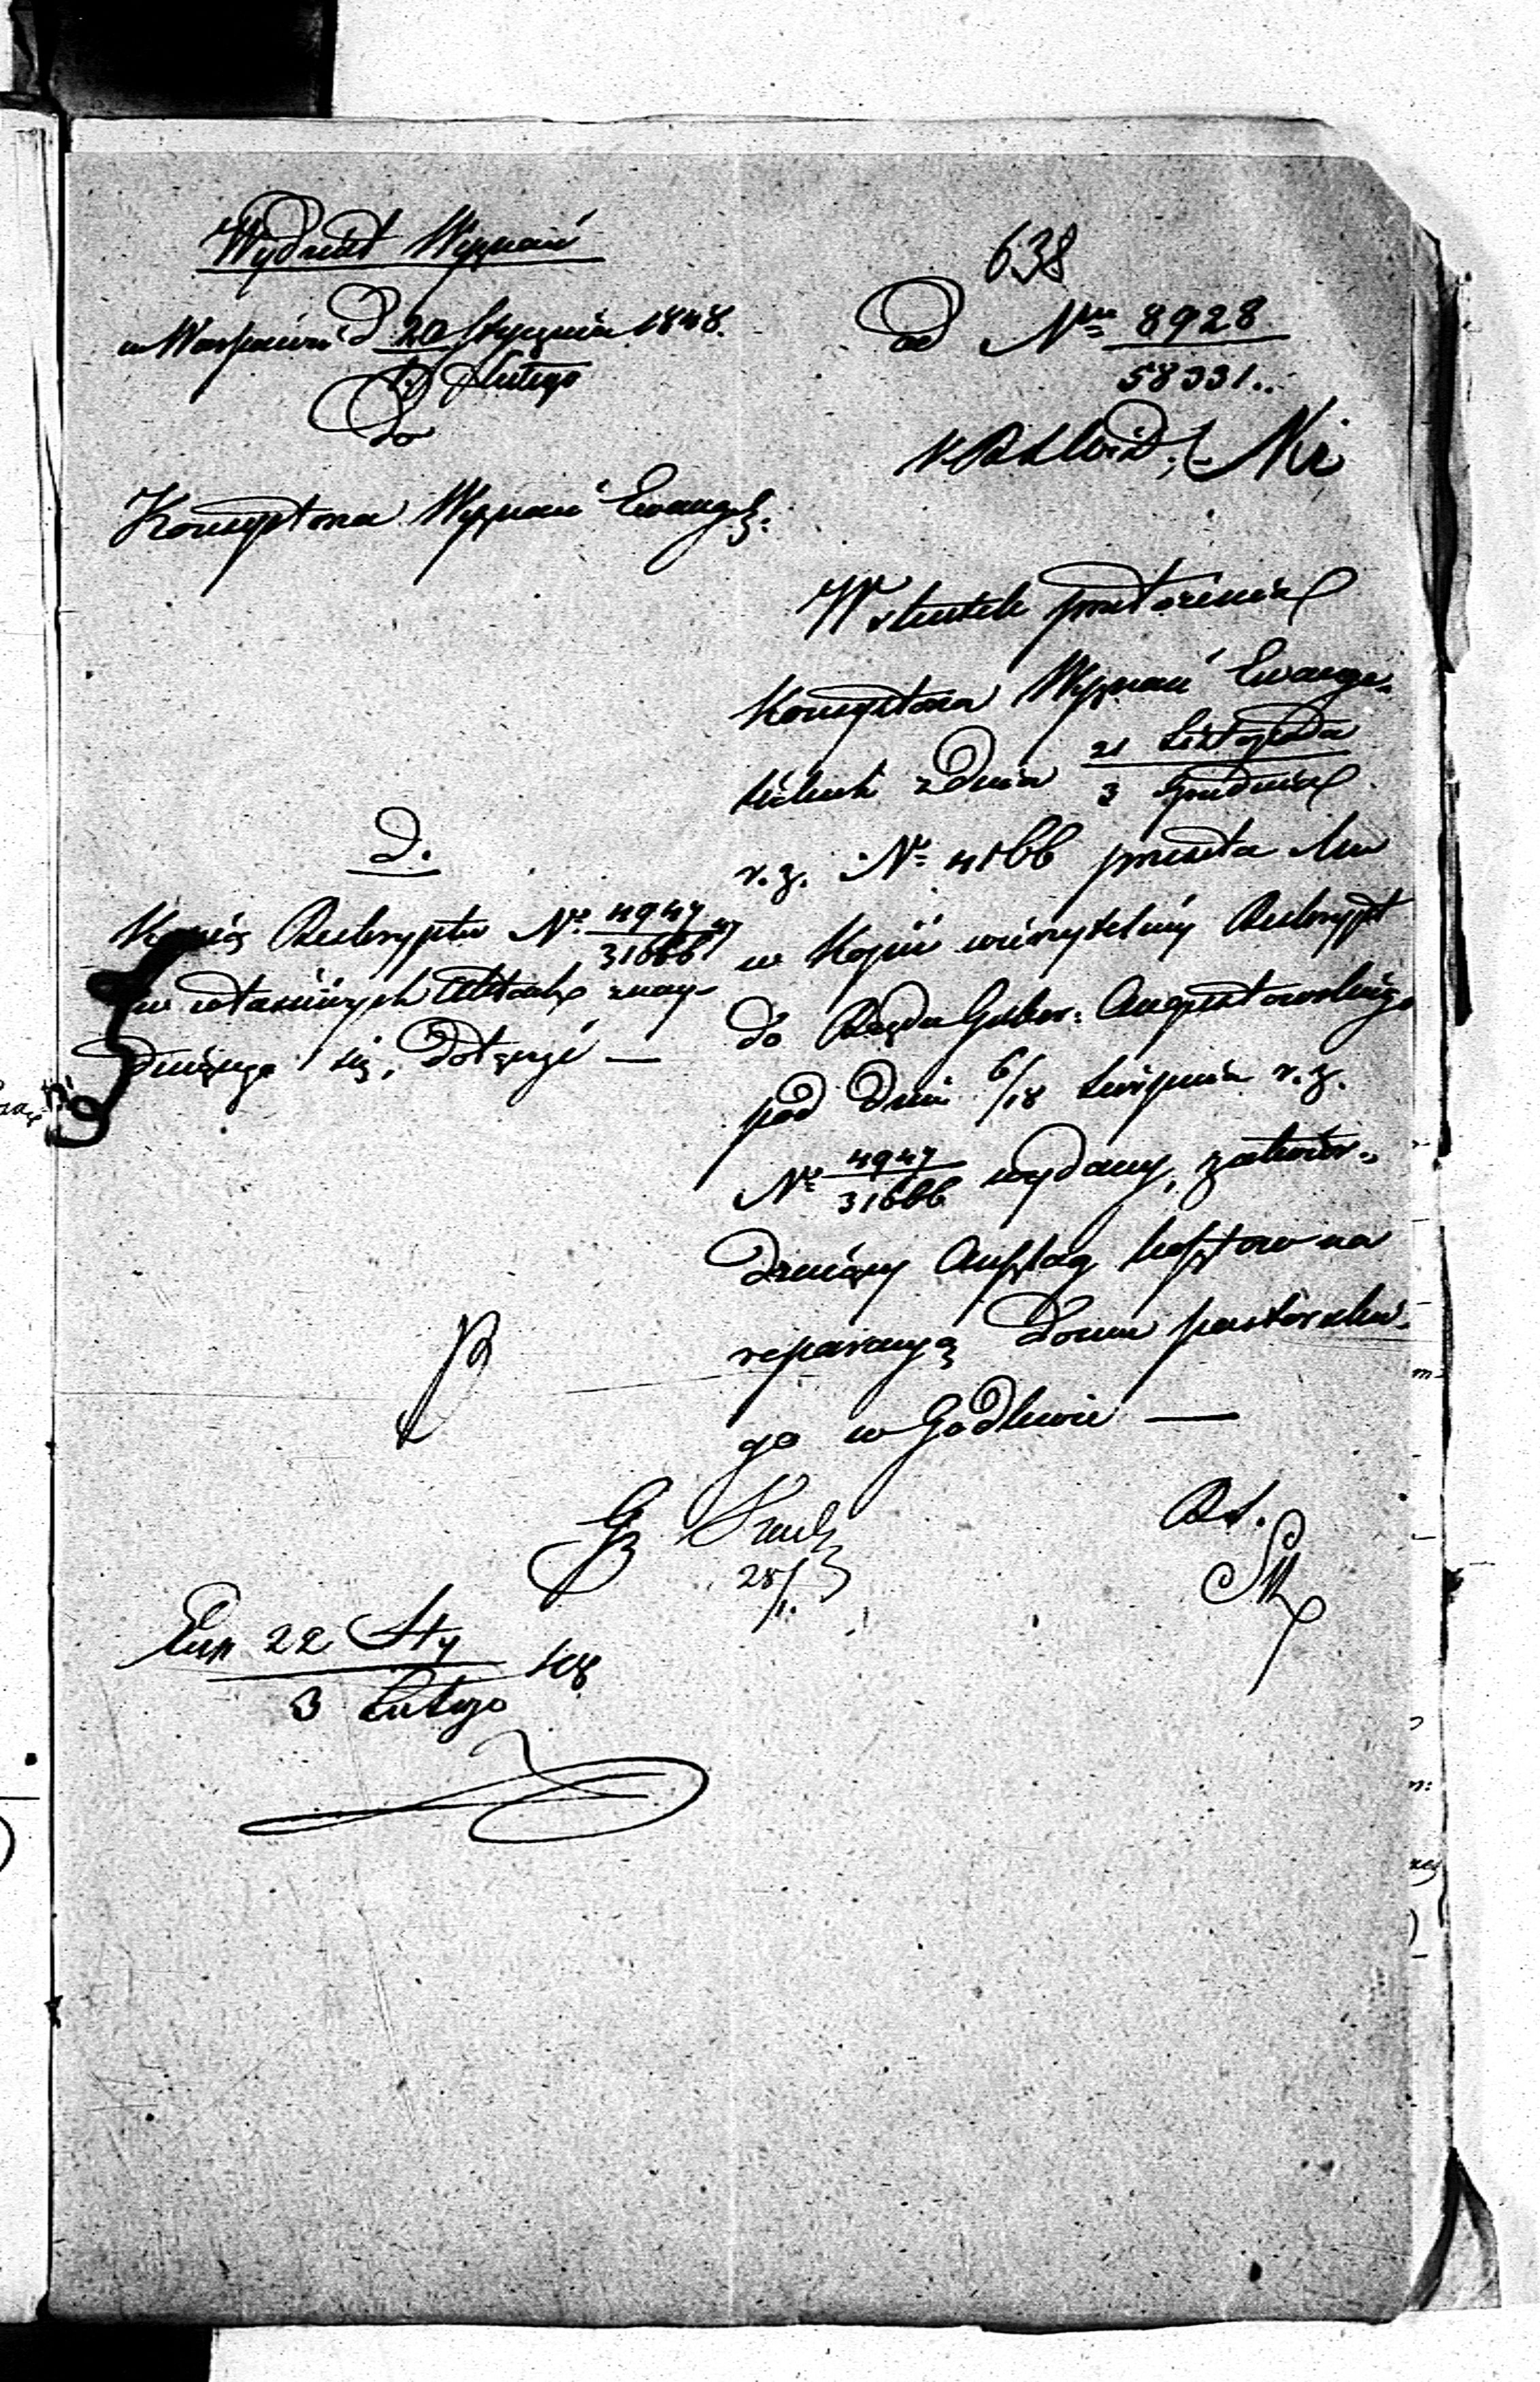 Wydział Wyznań
w Warszawie d 20 Stycznia 1848.
1 Lutego
Do
Konsystorza Wyznań Ewangel:
638
ad Nru 8928
58331..
W skutek przełożenia
Konsystorza Wyznań Ewange-
lickich z dnia 21 Listopada
3 Grudnia
r. z. No 4166 przesyła Mu
w Kopii wierzytelnéj Reskrypt
do Rządu Guber: Augustowskiego
pod dnia 6/18 Sierpnia r. z.
No 4947
31666 wydany, zatwier-
dzający Anszlag kosztow na
reparacyą domu pastorskie-
go w Godlewie —
D.
Kopią Reskryptu No 4947
31666 47
w właściwych Aktach znay-
duiącego się, dołączyć —
28/1.
Exp 22 Sty 848
3 Lutego